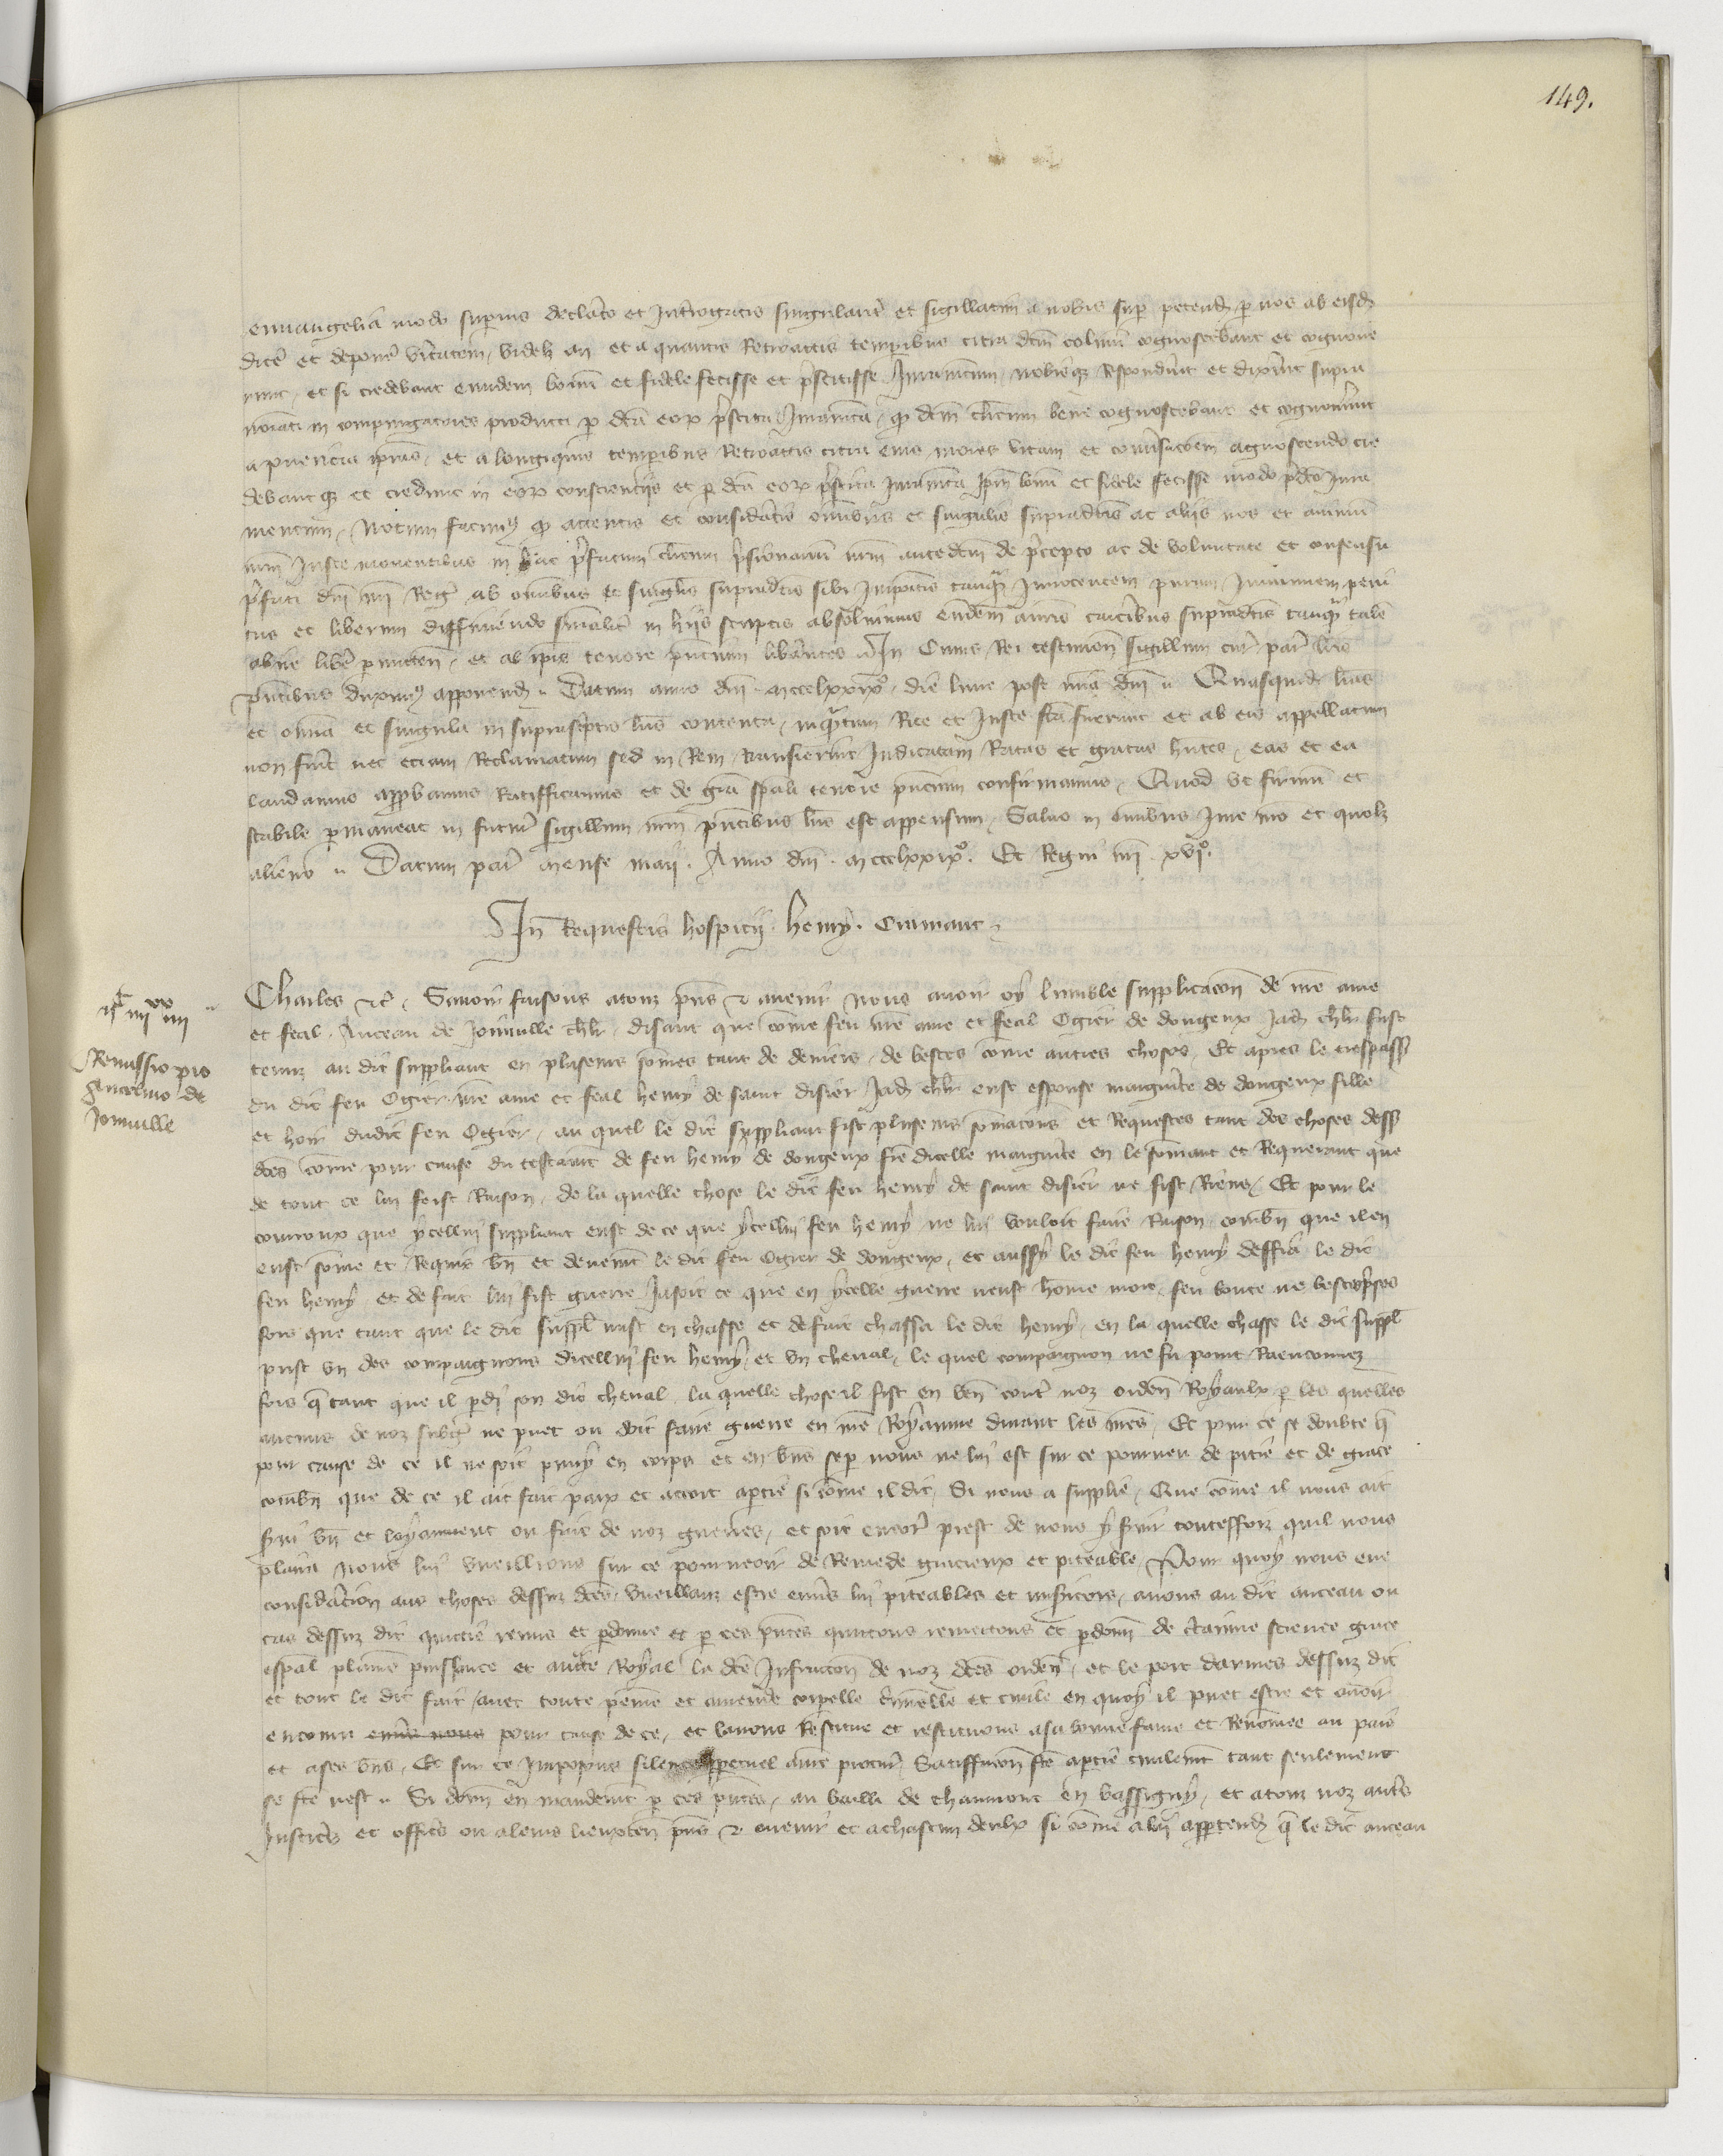 149.
emangelia modo superius declarato et interrogatis singulariter et sigillatim a nobis super petend per nos ab eisdem
dicere et deponere veritatem videlicet an et a quantis retroactis temporibus citra dictum colinum cognoscebant et cognove
runt et si credebant eundem bonum et fidele fecisse et prestitisse Juramentum nobisque responderunt et dixerunt supra
nominati in compurgatores producti per dicta eorum prestita Juramenta quod dictum clericum bene cognoscebant et cognoverunt
a puericia ipsius et a longiquis temporibus retroactis citra eius mores vitam et conversacionem agnoscendo cre
debantque et credunt in eorum consciencijs et per dicta eorum prestita Juramenta ipsum bonum et fidele fecisse modo predicto Jura
mentum Notum facimus quod attentis et consideratis omnibus et singulis supradictis ac alijs nos et animum
nostrum Juste moventibus in hac prefatum clericum prisionarium nostrum antedictum de precepto ac de voluntate et consensu
prefati domini nostri Regis ab omnibus et singulis supradictis sibi Impositis tanquam Innocentem purum Immunem peni
tus et liberum diffiniendo sentencialiter in hijs scriptis absolvimus eundem a nostris carceribus supradictis tanquam talem
abire libere permittendo et ab ipsis tenore presentium liberantes In Cuius Rei testimonium sigillum curie parisiensis litteris
presentibus duximus apponendum Datum anno domini mccclxxixo die lune post dominicam Quasquidem litteras
et omnia et singula in suprascriptis litteris contenta inquantum Rite et Juste facta fuerunt et ab eis appellatum
non fuerit nec eciam Reclamatum sed in Rem transierint Judicatam Ratas et gratas habentes eas et ea
laudamus approbamus Ratifficamus et de gracia speciali tenore presentium confirmamus Quod ut firmum et
stabile permaneat in futurum sigillum nostrum presentibus litteris est appensum Salvo in omnibus Jure nostro et quolibet
alieno Datum parisius mense maij Anno domini mccclxxixo Et Regni nostri xvio
In Requestis hospicij henry. Crumant
Charles etc Savoir faisons a touz presens et avenir Nous avoir oy lumble supplicacion de nostre ame
et feal Anceau de Joinville chevalier disant que comme feu nostre ame et feal Ogier de dongeux Jadis chevalier fust
tenuz au dit suppliant en pluseurs sommes tant de deniers de bestes comme autres choses Et apres le trespass
du dit feu Ogier nostre ame et feal henry de saint disier Jadis chevalier eust espouse marguerite de dongeux fille
et hoir dudit feu Ogier au quel le dit suppliant fist pluseurs sommacions et Requestes tant des choses dess
dictes comme pour cause du testament de feu henry de dongeux frere dicelle marguerite en le sommant et Requerant que
de tout ce lui feist Raison de la quelle chose le dit feu henry de saint disier ne fist Riens Et pour le
courroux que ycellui suppliant eust de ce que ycellui feu henry ne lui vouloit faire Raison combien que il en
eust somme et Requis bien et deuement le dit feu Ogier de dongeux et aussy le dit feu henry deffia le dit
feu henry et de fait lui fist guerre Jasoit ce que en ycelle guerre neust homme mort feu boute ne bestes prises
fors que tant que le dit suppliant mist en chasse et de fait chassa le dit henry en la quelle chasse le dit suppliant
prist un des compaignons dicellui feu henry et un cheval le quel compaignon ne fu point Raenconnez
fors que tant que il perdi son dit cheval la quelle chose il fist en venant contre noz ordenances Royaulx par les quelles
aucuns de noz subgiez ne puet ou doit faire guerre en nostre Royaume durant les nostres Et pour ce se doubte que
pour cause de ce il ne soit puny en corps et en biens se par nous ne lui est sur ce pourveu de pitie et de grace
combien que de ce il ait fait paix et accort a partie si comme il dit Si nous a supplie Que comme il nous ait
servi bien et loyaument ou fait de noz guerres et soit encores prest de nous y servir toutesfoiz quil nous
plaira Nous lui vueillions sur ce pourveoir de Remede gracieux et piteable Pour quoy nous eue
consideracion aus choses dessuz dictes vueillanz estre envers lui piteables et misericors avons au dit anceau ou
cas dessuz dit quictie remis et pardonne et par ces presentes quittons remettons et pardonnons de certaine science grace
especial plaine puissance et auctorite Royal la dicte Infraction de noz dictes ordenances et le port darmes dessuz dit
et tout le dit fait avec toute peine et amende corporelle criminelle et civile en quoy il puet estre et avoir
encouru envers nous pour cause de ce et lavons Restitue et restituons a sa bonne fame et Renommee au pais
et a ses biens Et sur ce Imposons silence perpetuel a nostre procureur Satiffacion faicte a partie civilement tant seulement
se faicte nest Si donnons en mandement par ces presentes au bailli de chaumont en bassigny et a touz noz autres
Justiciers et officiers ou a leurs lieuxtenans presens et avenir et a chascun deulx si comme a lui appartendra que le dit anceau
Remissio pro
Ancelmo de
Joinville